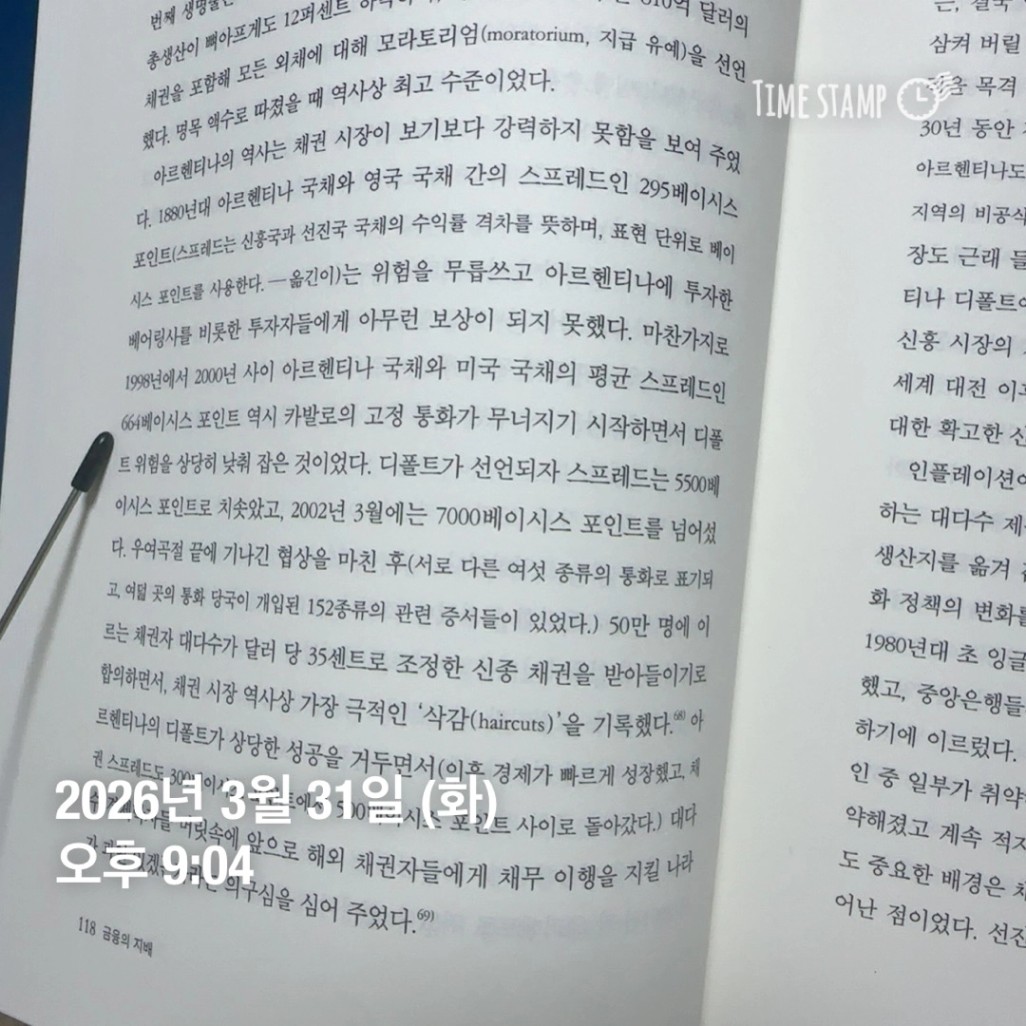 번째
총생산이 뼈아프게도 12퍼센트 610억 달러의
채권을 포함해 모든 외채에 대해 모라토리엄(moratorium, 지급 유예)을 선언
했다. 명목 액수로 따졌을 때 역사상 최고 수준이었다.
아르헨티나의 역사는 채권 시장이 보기보다 강력하지 못함을 보여 주었
다. 1880년대 아르헨티나 국채와 영국 국채 간의 스프레드인 295베이시스
포인트(스프레드는 신흥국과 선진국 국채의 수익률 격차를 뜻하며, 표현 단위로 베이
시스 포인트를 사용한다. — 옮긴이)는 위험을 무릅쓰고 아르헨티나에 투자한
베어링사를 비롯한 투자자들에게 아무런 보상이 되지 못했다. 마찬가지로
1998년에서 2000년 사이 아르헨티나 국채와 미국 국채의 평균 스프레드인
664베이시스 포인트 역시 카발로의 고정 통화가 무너지기 시작하면서 디폴
트 위험을 상당히 낮춰 잡은 것이었다. 디폴트가 선언되자 스프레드는 5500베
이시스 포인트로 치솟았고, 2002년 3월에는 7000베이시스 포인트를 넘어섰
다. 우여곡절 끝에 기나긴 협상을 마친 후(서로 다른 여섯 종류의 통화로 표기되
고, 여덟 곳의 통화 당국이 개입된 152종류의 관련 증서들이 있었다.) 50만 명에 이
르는 채권자 대다수가 달러 당 35센트로 조정한 신종 채권을 받아들이기로
합의하면서, 채권 시장 역사상 가장 극적인 ‘삭감(haircuts)’을 기록했다.68) 아
르헨티나의 디폴트가 상당한 성공을 거두면서(이후 경제가 빠르게 성장했고, 채
권 스프레드도 300 500베이시스 포인트 사이로 돌아갔다.) 대다
머릿속에 앞으로 해외 채권자들에게 채무 이행을 지킬 나라
의구심을 심어 주었다.69)
118 금융의 지배
삼켜 버릴
목격
30년 동안
아르헨티나도
지역의 비공식
장도 근래
티나 디폴트
신흥 시장의
세계 대전 이
대한 확고한 신
인플레이션
하는 대다수 제
생산지를 옮겨
화 정책의 변화를
1980년대 초 잉글
했고, 중앙은행들
하기에 이르렀다.
인 중 일부가 취약
약해졌고 계속 적자
도 중요한 배경은 채
어난 점이었다. 선진
TIME STAMP
2026년 3월 31일 (화)
오후 9:04